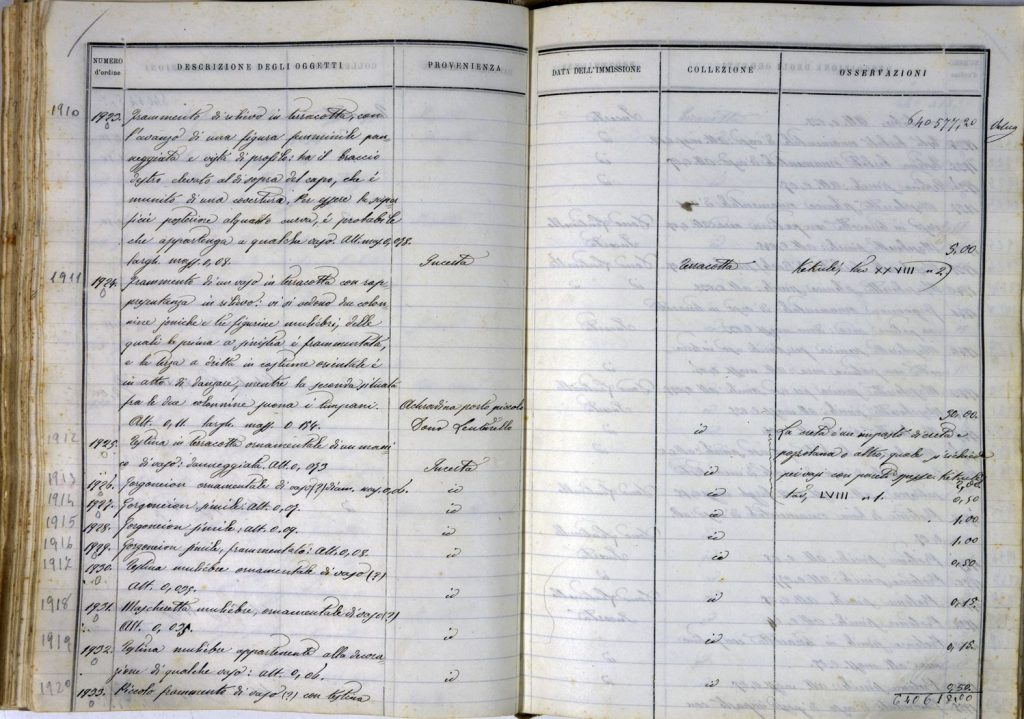 NUMERO d'ordine
DESCRIZIONE DEGLI OGGETTI
PROVENIENZA
DATA DELL'IMMISSIONE
COLLEZIONE
OSSERVAZIONI
640577,20
1910
1923. Frammento di rilievo in terracotta, con
l'avanzo di una figura femminile pan-
neggiata e vista di profilo: ha il braccio
destro elevato al di sopra del capo, che è
munito di una covertura. Per essere la super-
ficie posteriore alquanto curva, è probabile
che appartenga a qualche vaso. Alt. mass. 0,078.
largh. mass. 0,08. Incerta Terracotta Kekulé, tav XXXIII n 2)
5.00
1911
1924. Frammento di un vaso in terracotta con rap-
presentanza in rilievo: vi si vedono due colon-
nine joniche e tre figurine muliebri, delle
quali la prima a sinistra è frammentata,
e la terza a dritta in costume orientale è
in atto di danzare, mentre la seconda situata
fra le due colonnine suona i timpani. Achradina porto piccolo
Alt. 0,11 largh. mass. 0 Dono id
50.00
1912
1925. Testina in terracotta ornamentale di un mani-
co di vaso: danneggiata. Alt. 0,073 Incerta id
La creta è un impasto di creta e
pozzolana o altro, quale si richiede
pei vasi con pareti spesse. Kekulé
tav, LVIII n 1.
2,00
1913
1926. Gorgoneion ornamentale di vaso (?) diam. mass. 0,06. id id 0,50
1914
1927. Gorgoneion simile: alt. 0,07. id id 1.00
1915
1928. Gorgoneion simile: alt. 0,09. id id 1.00
1916
1929. Gorgoneion simile, frammentato: alt. 0,08. id id 0,50
1917
1930. Testina muliebre ornamentale di vaso (?)
Alt. 0,035. id id 0,15.
1918
1931. Maschietta muliebre, ornamentale di vaso (?)
Alt. 0,035. id id 0,15.
1919
1932. Testina muliebre appartenente alla decora-
zione di qualche vaso: alt. 0,06. id id 2,50.
1920
1933. Piccolo frammento di vaso (?) con testina